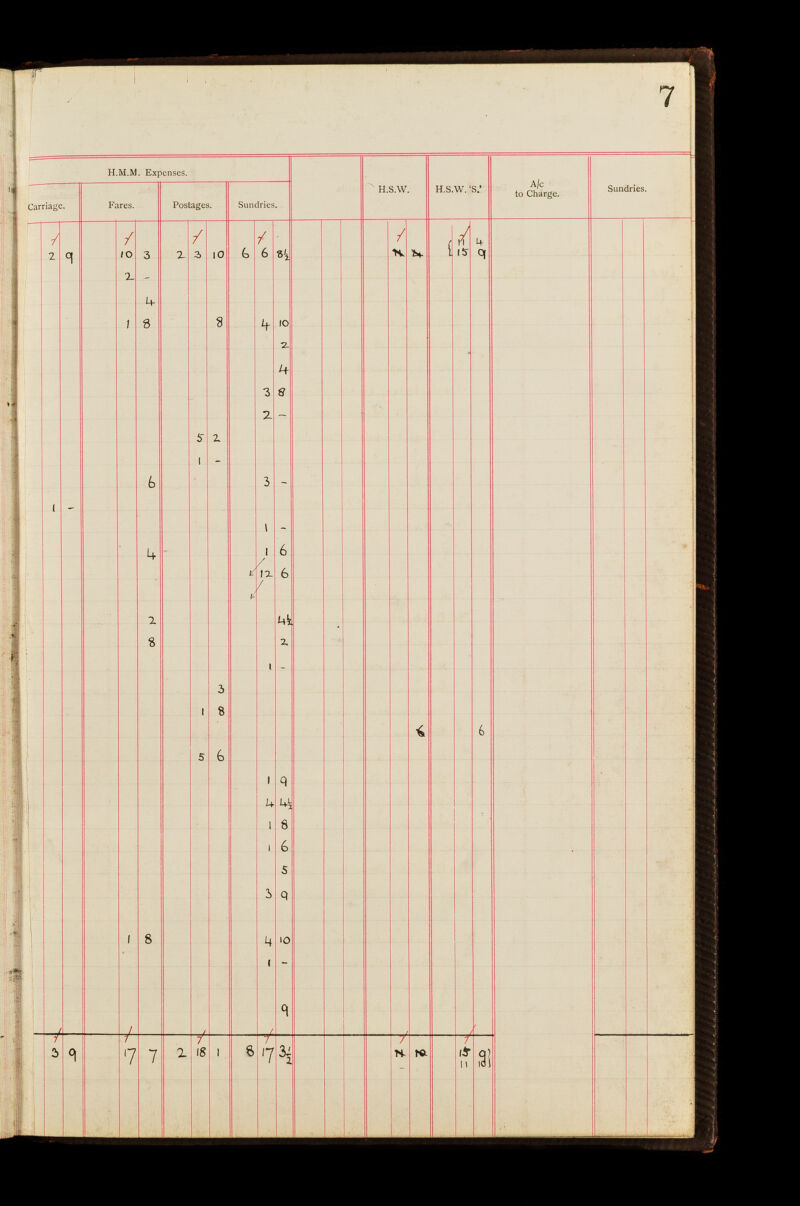 7
H.M.M. Expenses.
Carriage. Fares. Postages. Sundries. H.S.W. H.S.W. 'S.' A/c to Charge. Sundries.
11 4
2 9 10 3 2 3 10 6 6 8½ 15 9
2 -
4
1 8 8 4 10
2
4
3 8
2 -
5 2
1 -
6 3 -
1 -
1 -
4 1 6
12 6
2 4½
8 2
1 -
3
1 8
6 6
5 6
1 9
4 4½
1 8
1 6
5
3 9
1 8 4 10
1 -
9
3 9 17 7 2 18 1 8 17 3½ 15 9
11 10